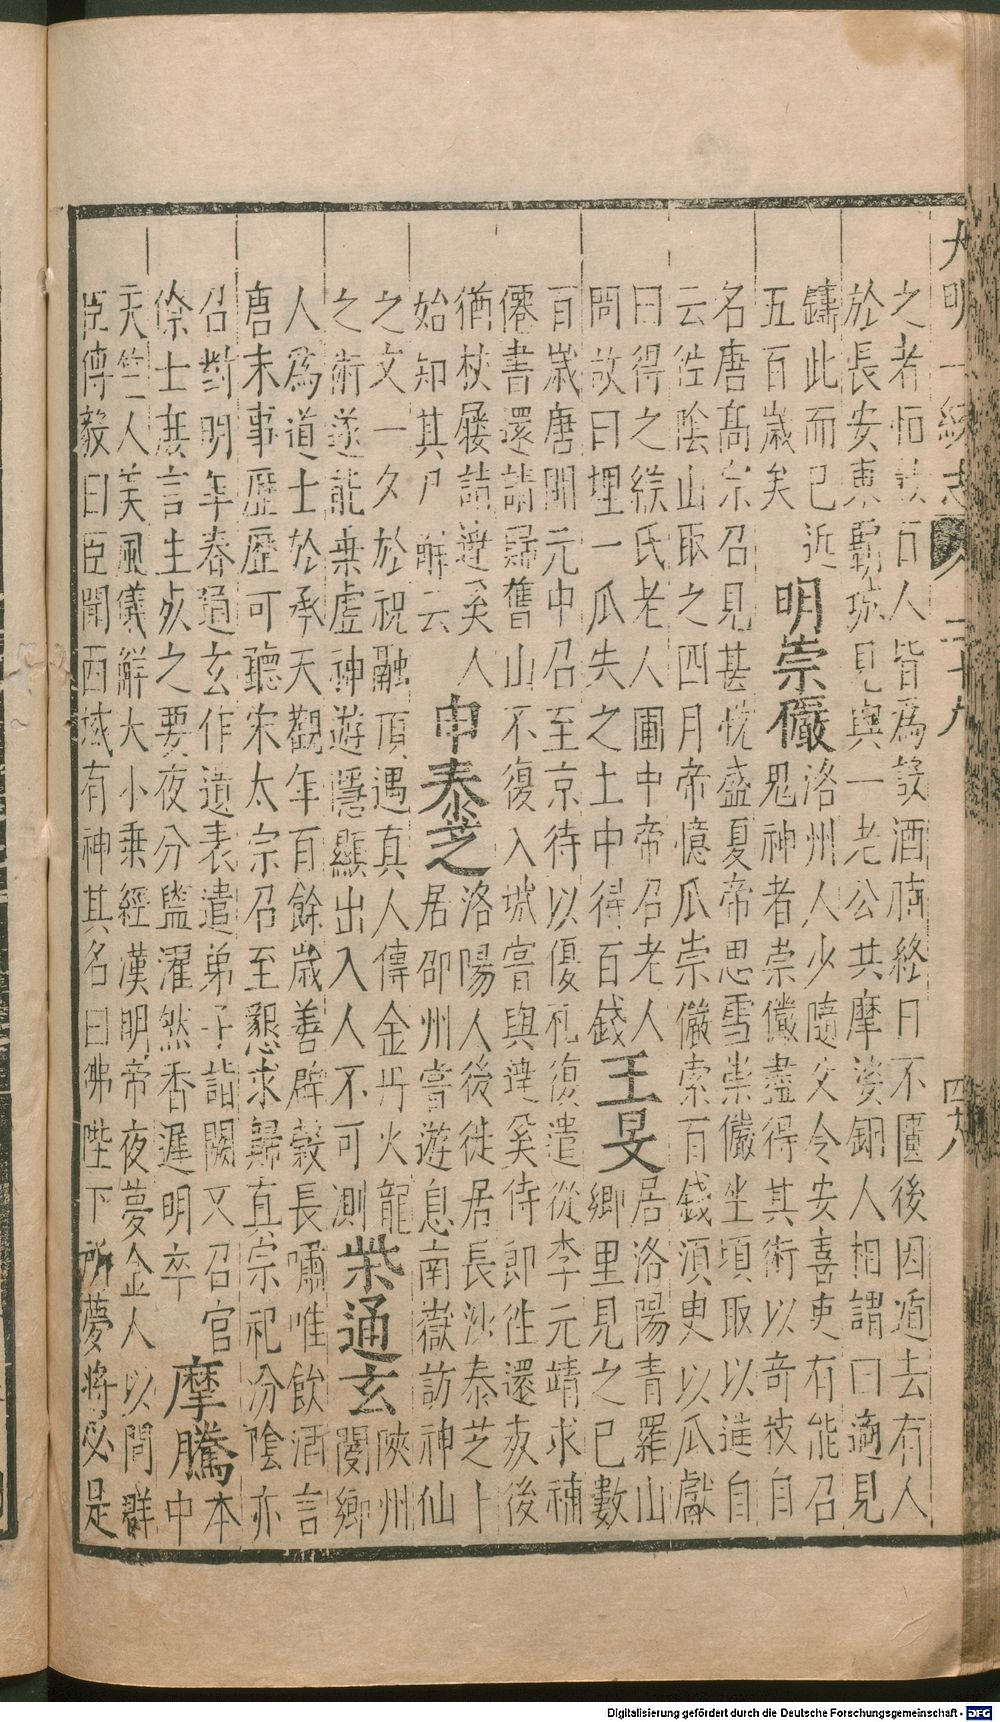 大明一統志 二十九 四十八
之者恒數百人皆為設酒脯終日不匱後因遁去有人
於長安東霸城見與一老公共摩挲銅人相謂曰適見
鑄此而已近
五百歲矣
明崇儼
洛州人少隨父令安喜吏有能召
鬼神者崇儼盡得其術以奇技自
名唐高宗召見甚悅盛夏帝思雪崇儼坐頃取以進自
云往陰山取之四月帝憶瓜崇儼索百錢須臾以瓜獻
曰得之緱氏老人圃中帝召老人
問故曰埋一瓜失之土中得百錢
王旻
居洛陽青羅山
鄉里見之已數
百歲唐開元中召至京待以優礼復遣從李元靖求補
僊書還請歸舊山不復入城嘗與達奚侍郎往還叐後
猶杖屨詣達奚人
始知其尸解云
申泰芝
洛陽人後徙居長沙泰芝卜
居邵州嘗遊息南嶽訪神仙
之文一夕於祝融頂遇真人傳金丹火龍
之術遂能乗虛神遊隱顯出入人不可測
柴通玄
陝州
閿鄉
人為道士於承天觀年百餘歲善辟穀長嘯唯飲酒言
唐末事歷歷可聽宋太宗召至懇求歸真宗祀汾陰亦
召對明年春通玄作遺表遣弟子詣闕又召官
僚士庶言生死之要夜分盥濯然香遲明卒
摩騰
本
中
天竺人美風儀觧大小乗經漢明帝夜夢金人以問群
臣傳毅曰臣聞西域有神其名曰佛陛下所夢將必是
Digitalisierung gefördert durch die Deutsche Forschungsgemeinschaft - DFG